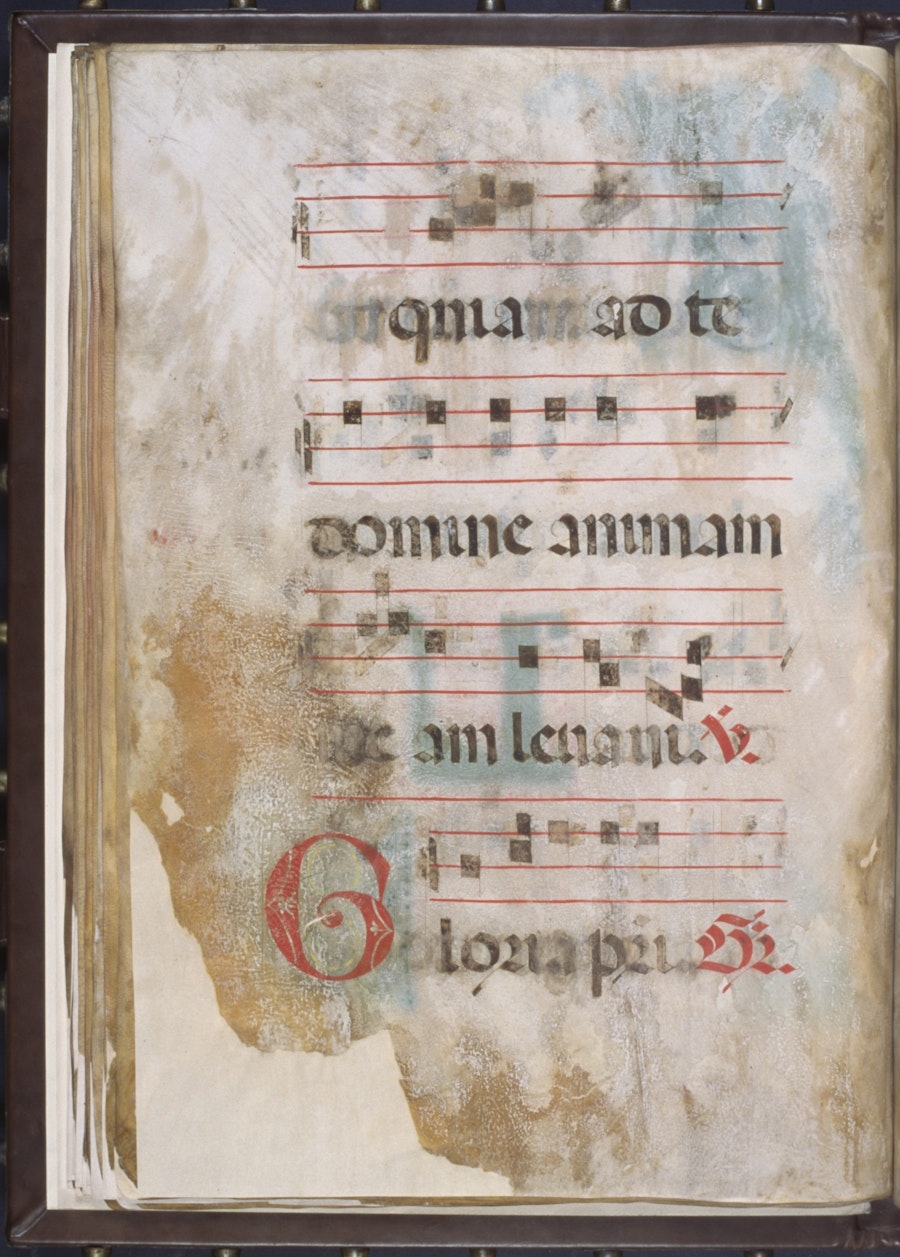 quia ad te
domine animam
me am leuaui. V.
Gloria pri.